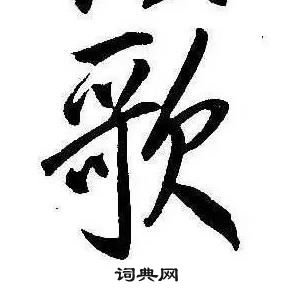 歌
词典网